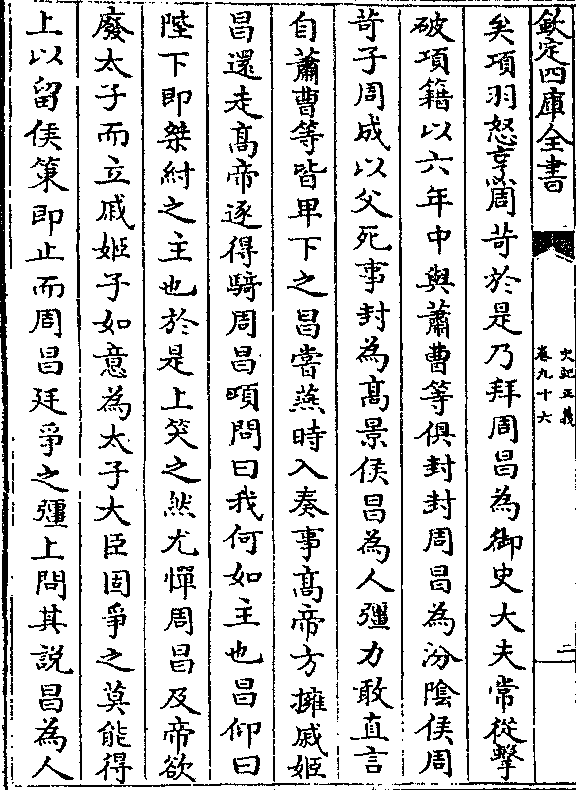 欽定四庫全書
史記正義
卷九十六
二
矣項羽怒亨周苛於是乃拜周昌為御史大夫常從擊
破項籍以六年中與蕭曹等俱封封周昌為汾隂侯周
苛子周成以父死事封為髙景侯昌為人彊力敢直言
自蕭曹等皆卑下之昌嘗燕時入奏事髙帝方擁戚姬
昌還走髙帝逐得騎周昌項問曰我何如主也昌仰曰
陛下即桀紂之主也於是上笑之然尤憚周昌及帝欲
廢太子而立戚姬子如意為太子大臣固爭之莫能得
上以留侯策即止而周昌廷爭之彊上問其說昌為人